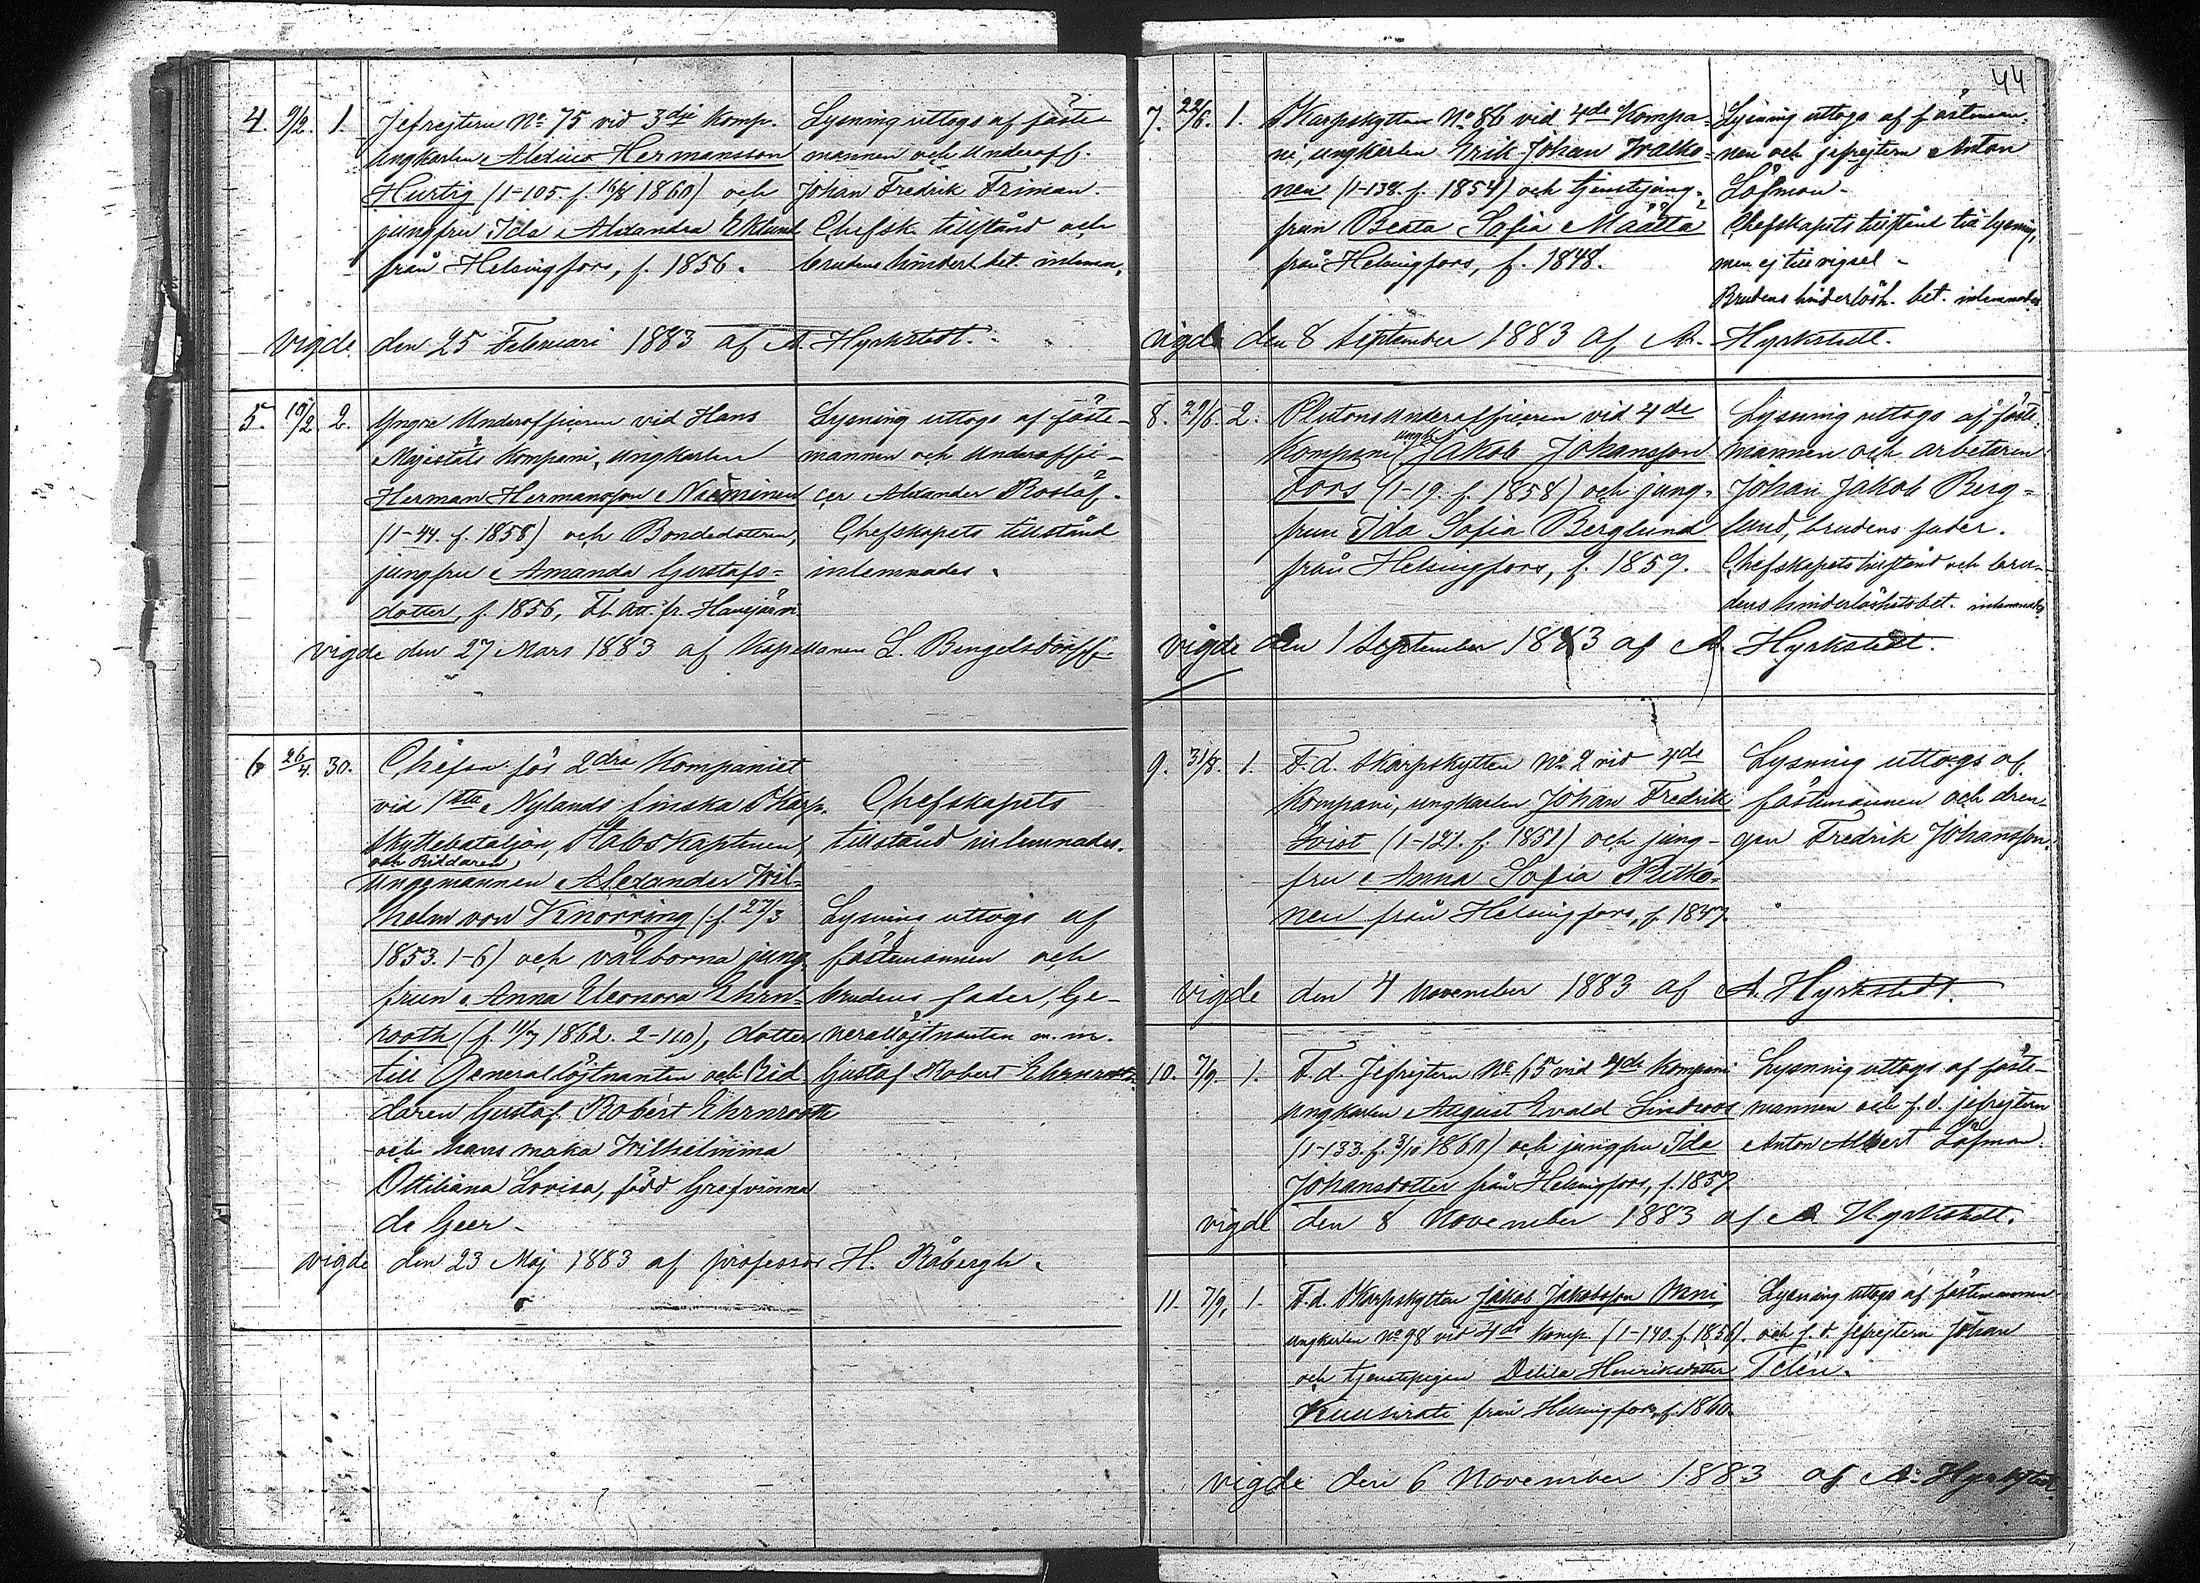 4. 9/2. 1. Jefrejtern No 75 vid 3dje Komp.
Ungkarlen Alexius Hermansson
Hurtig (1-105. f. 16/8 1860) och
jungfru Ida Alexandra Eklund
från Helsingfors, f. 1856.
Lysning uttogs af fäste-
mannen och Underoff.
Johan Fredrik Friman.
Chefsk. tillstånd och
brudens hinderl. bet. inlemn.
vigde den 25 Februari 1883 af A. Hyrkstedt.
5. 10/2. 2. Yngre Underofficeren vid Hans
Majestäts Kompani, Ungkarlen
Herman Hermansson Nieminen
(1-44. f. 1858) och Bondedottren,
jungfru Amanda Gustafs-
dotter, f. 1856, Fl. Att. fr. Hausjärvi
Lysning uttogs af fäste-
mannen och Underoffi-
cer Alexander Rostöf.
Chefskapets tillstånd
inlemnades.
vigde den 27 Mars 1883 af Kapellanen L. Bengelsdorff.
6 26/4. 30. Chefen för 2dra Kompaniet
vid 1sta Nylands finska Skarp-
skyttebataljon, Stabskaptenen,
och Riddaren
Ungemannen Alexander Wil-
helm von Knorring (f. 27/3
1853. 1-6) och välborna jung-
frun Anna Eleonora Ehrn-
rooth (f. 11/7 1862. 2-110), dotter
till Generallöjtnanten och Rid-
daren Gustaf Robert Ehrnrooth
och hans maka Wilhelmina
Ottiliana Lovisa, född Grefvinna
de Geer.
Chefskapets
tillstånd inlemnades.
Lysning uttogs af
fästemannen och
brudens fader, Ge-
nerallöjtnanten m. m.
Gustaf Robert Ehrnrooth.
vigde den 23 Maj 1883 af professor H. Råbergh.
44
7. 22/6. 1. Skarpskytten No 86 vid 4de Kompa-
ni, ungkarlen Erik Johan Walko-
nen (1-138. f. 1854) och tjenstejung-
frun Beata Sofia Määttä
från Helsingfors, f. 1848.
Lysning uttogs af fästeman-
nen och jefrejtern Anton
Löfman.
Chefskapets tillstånd till lysning,
men ej till vigsel.
Brudens hinderlösh. bet. inlemnades
vigde den 8 September 1883 af A. Hyrkstedt.
8. 29/6. 2. Plutonsunderofficeren vid 4de
ungk.
Kompani Jakob Johansson
Fors (1-19. f. 1858) och jung-
frun Ida Sofia Berglund
från Helsingfors, f. 1859.
Lysning uttogs af fäste-
mannen och arbetaren
Johan Jakob Berg-
lund, brudens fader.
Chefskapets tillstånd och bru-
dens hinderlöshetsbet. inlemnades
vigde den 1 September 1883 af A. Hyrkstedt.
9. 31/8. 1. F.d. Skarpskytten No 2 vid 4de
Kompani, ungkarlen Johan Fredrik
Qvist (1-121. f. 1851) och jung-
fru Anna Sofia Pitko-
nen från Helsingfors, f. 1847.
Lysning uttogs af
fästemannen och dren-
gen Fredrik Johansson.
vigde den 4 November 1883 af A. Hyrkstedt.
10. 7/9. 1. F.d. Jefrejtern No 65 vid 4de Kompani
Ungkarlen August Evald Lindroos
(1-133. f. 3/10 1860) och jungfru Ida
Johansdotter från Helsingfors, f. 1857
Lysning uttogs af fäste-
mannen och f.d. jefrejtern
Anton Albert Löfman.
vigde den 8 November 1883 af A. Hyrkstedt.
11. 7/9. 1. F.d. Skarpskytten Jakob Jakobsson Wani,
Ungkarlen No 98 vid 4de Komp. (1-140. f. 1856).
och tjenstepigan Delila Henriksdotter
från Helsingfors, f. 1860.
Lysning uttogs af fästemannen
och f.d. jefrejtern Johan
Telén.
vigde den 6 November 1883 af A. Hyrkstedt.